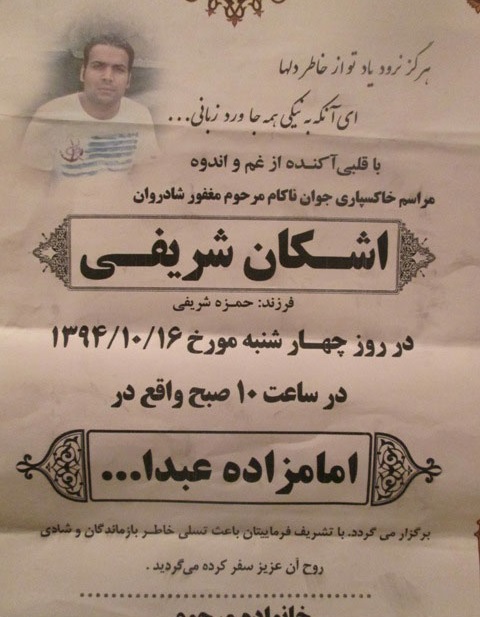 هرگز نرود یاد تو از خاطر دلها
ای آنکه به نیکی همه جا ورد زبانی...
با قلبی آکنده از غم و اندوه
مراسم خاکسپاری جوان ناکام مرحوم مغفور شادروان
اشکان شریفی
فرزند: حمزه شریفی
در روز چهار شنبه مورخ ۱۳۹۴/۱۰/۱۶
در ساعت ۱۰ صبح واقع در
امامزاده عبدا...
برگزار می گردد. با تشریف فرماییتان باعث تسلی خاطر بازماندگان و شادی
روح آن عزیز سفر کرده می‌گردید .
خانواده مرحوم